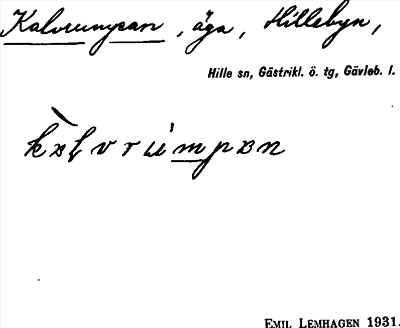 Kalvrumpan, äga, Hillebyn,
Hille sn, Gästrikl. ö. tg, Gävleb. l.
EMIL LEMHAGEN 1931.